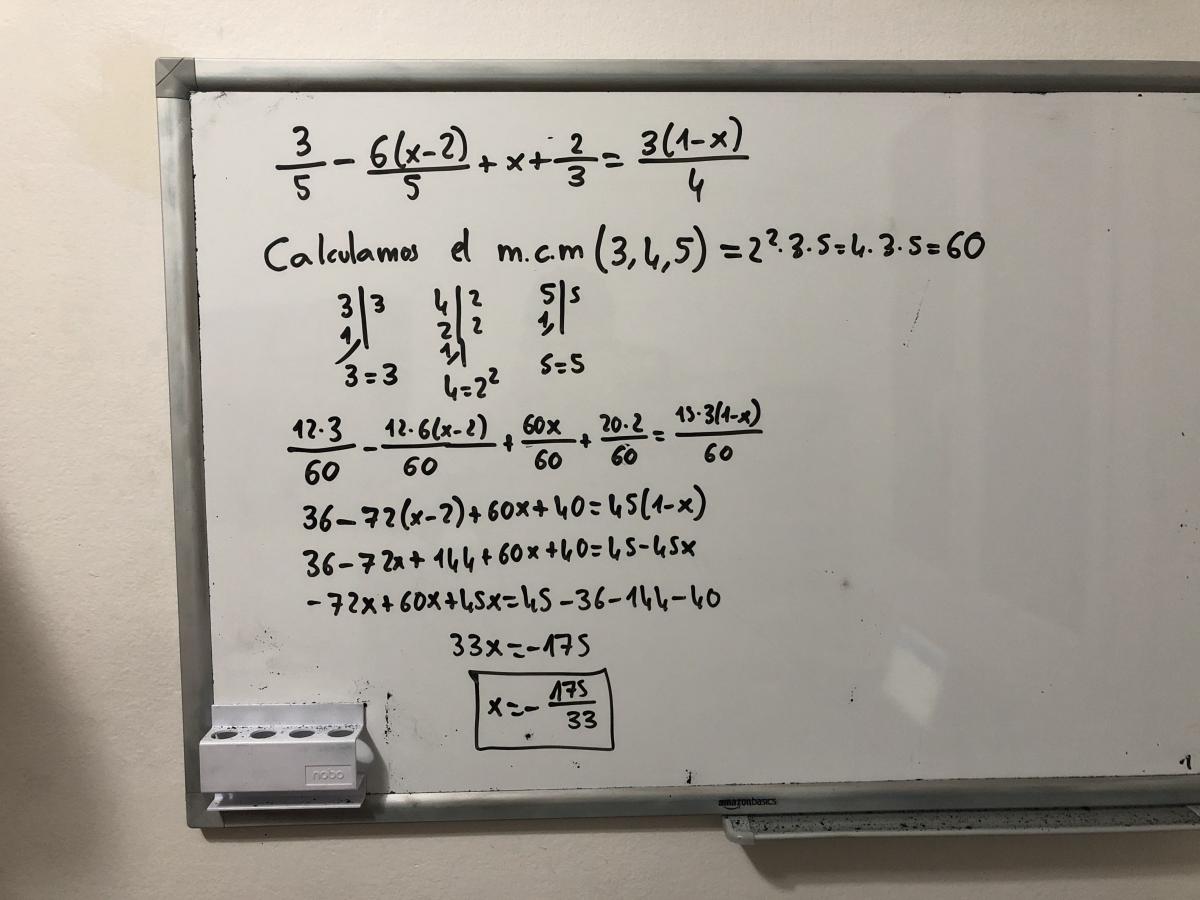 3/5 - 6(x-2)/5 + x + 2/3 = 3(1-x)/4
Calculamos el m.c.m (3,4,5) = 2².3.5=4.3.5=60
3|3 4|2 5|5
1| 2|2 1|
1|
3=3 4=2² 5=5
12·3/60 - 12·6(x-2)/60 + 60x/60 + 20·2/60 = 15·3(1-x)/60
36-72(x-2)+60x+40=45(1-x)
36-72x+144+60x+40=45-45x
-72x+60x+45x=45-36-144-40
33x=-175
x=-175/33
nobo
amazonbasics